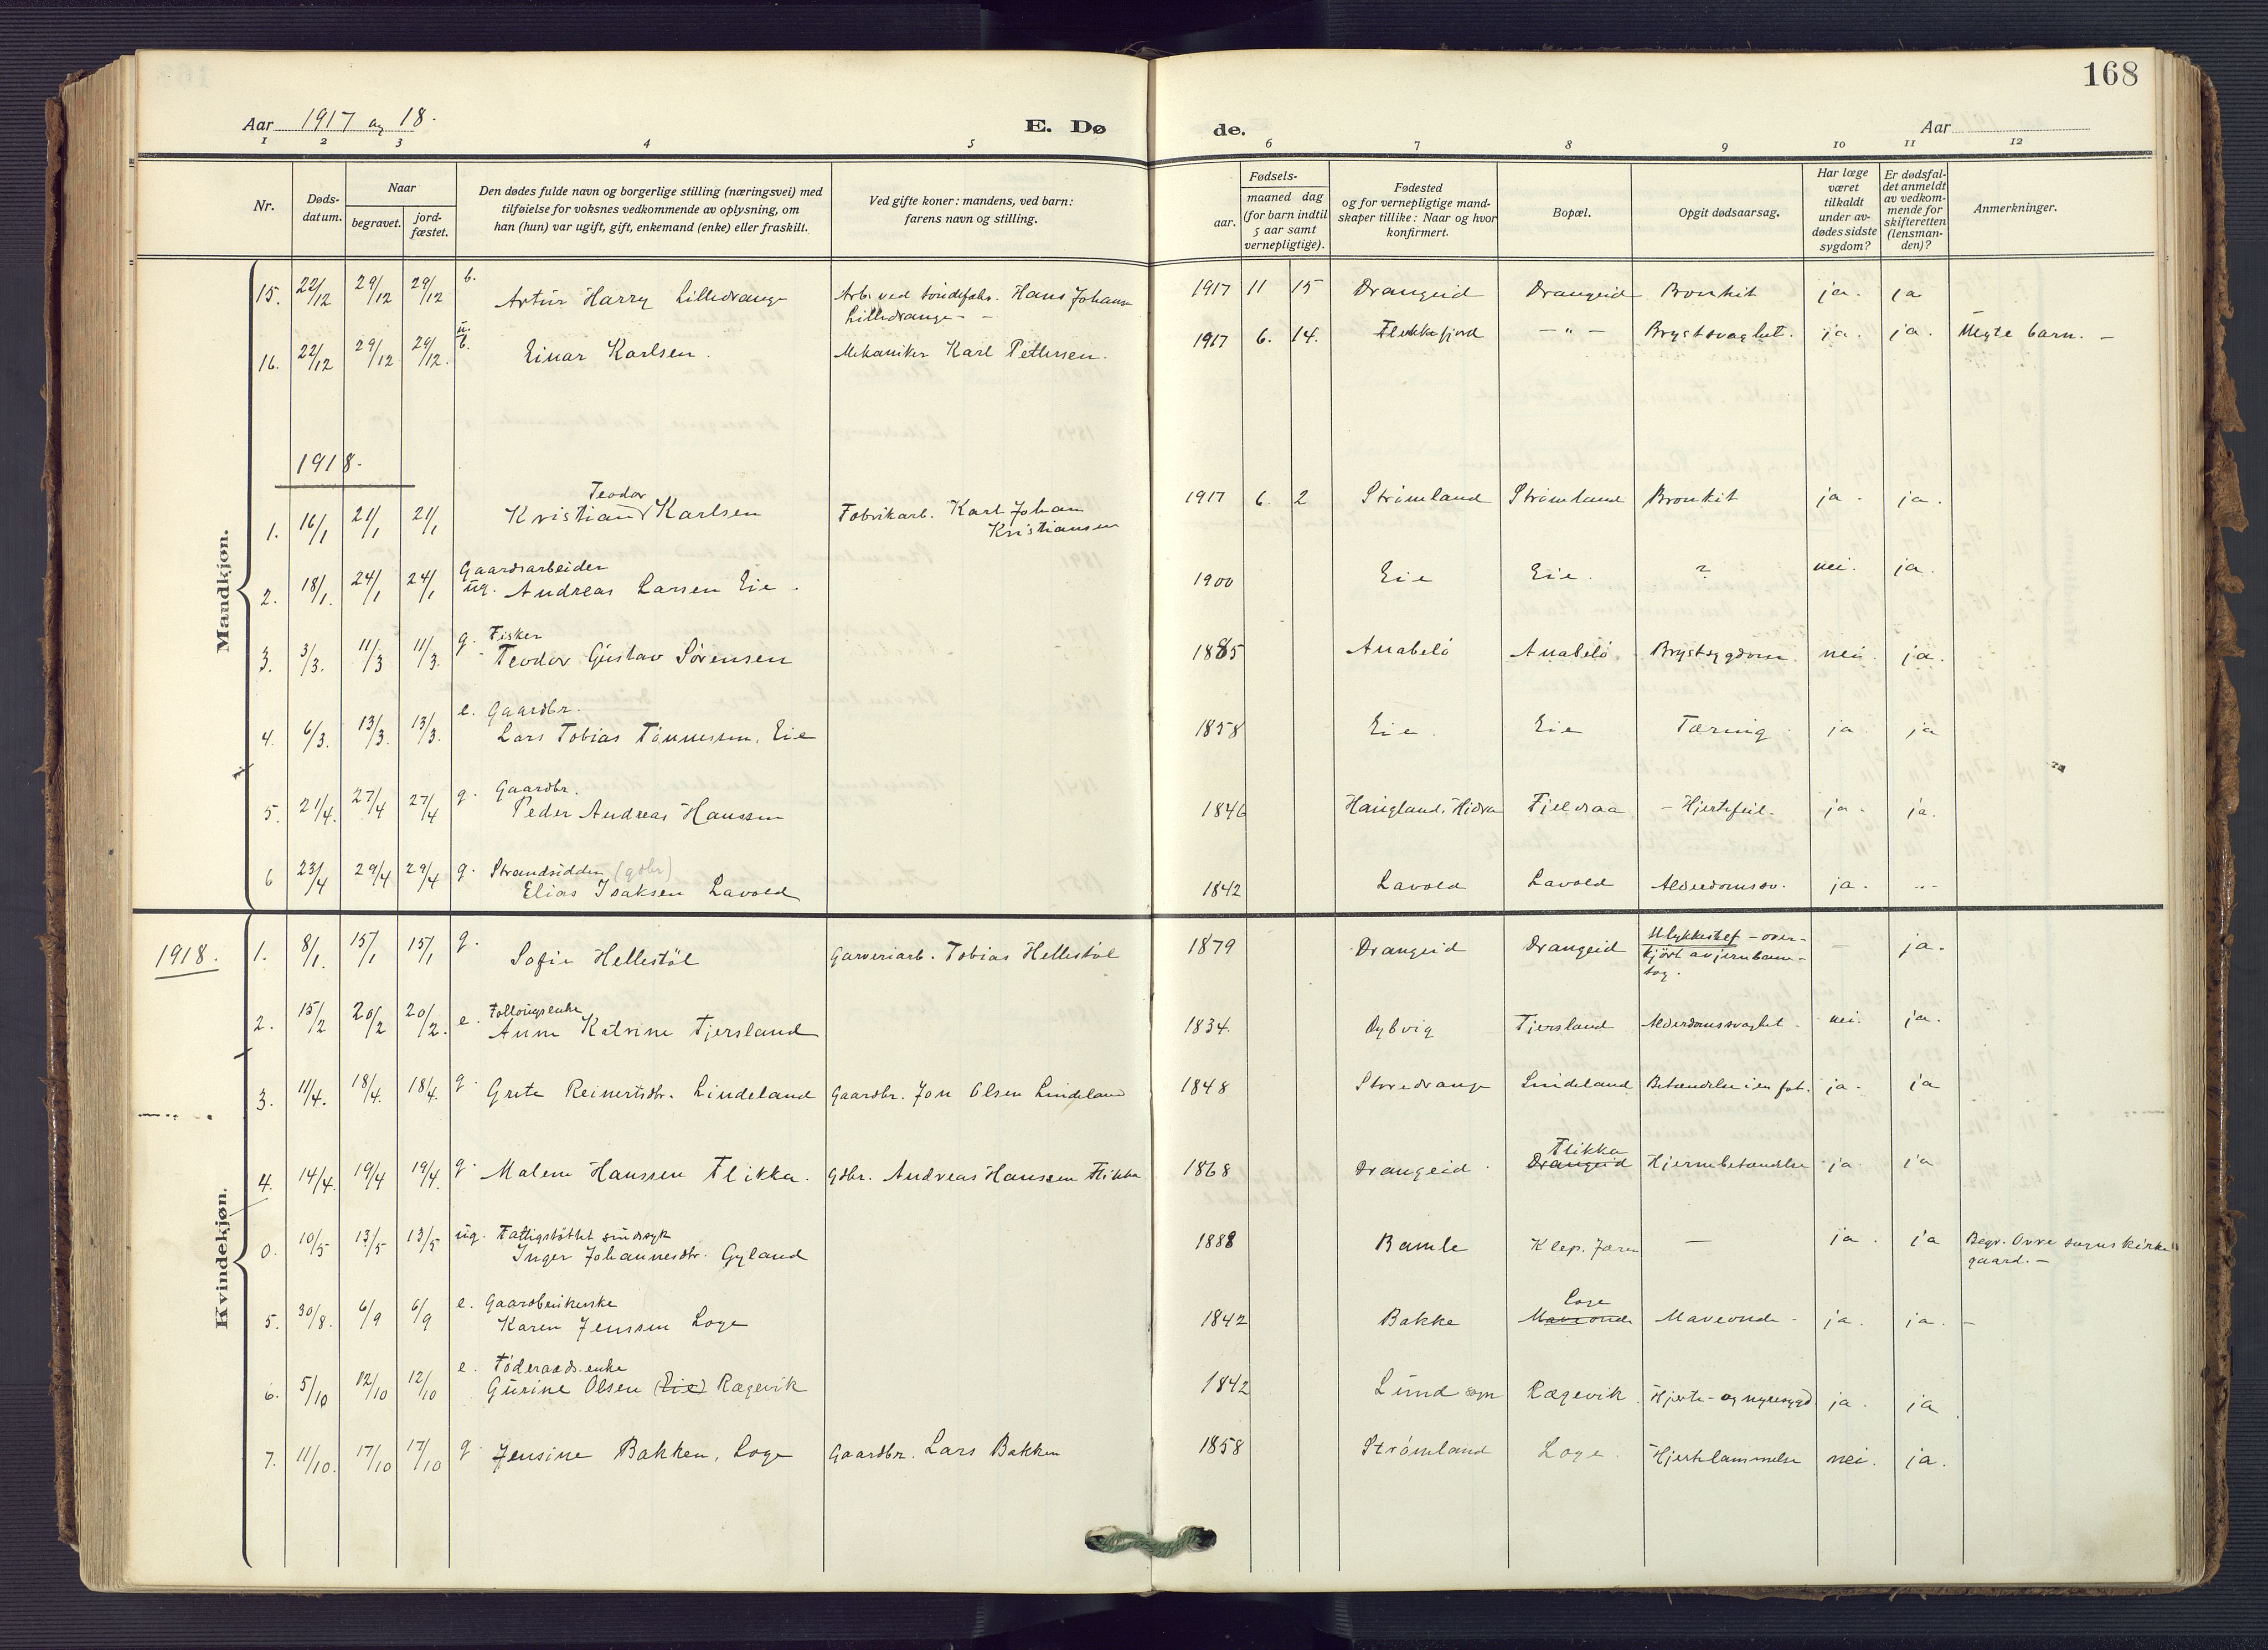 168
Aar 1917 og 18.
E. Dø
de.
Aar
1 2 3 4 5 6 7 8 9 10 11 12
Nr.
Døds-
datum.
Naar
begravet.
jord-
fæstet.
Den dødes fulde navn og borgerlige stilling (næringsvei) med
tilføielse for voksnes vedkommende av oplysning, om
han (hun) var ugift, gift, enkemand (enke) eller fraskilt.
Ved gifte koner: mandens, ved barn:
farens navn og stilling.
Fødsels-
aar.
maaned dag
(for barn indtil
5 aar samt
vernepligtige).
Fødested
og for vernepligtige mand-
skaper tillike: Naar og hvor
konfirmert.
Bopæl.
Opgit dødsaarsag.
Har læge
været
tilkaldt
under av-
dødes sidste
sygdom?
Er dødsfal-
det anmeldt
av vedkom-
mende for
skifteretten
(lensman-
den)?
Anmerkninger.
Mandkjøn.
15. 22/12 29/12 29/12 b. Artur Harry Lilledrange Arb. ved Hans Johans 1917 11 15 Drangeid Drangeid Bronkit ja. ja
Lilledrange
16. 22/12 29/12 29/12. u. b. Einar Karlsen. Mekaniker Karl Pettersen. 1917 6. 14. Flekkefjord — " — Brystsvaghet. ja. ja. Uegte barn. —
1918.
Teodor
1. 16/1 21/1 21/1 Kristian Karlsen Fabrikarb. Karl Johan 1917 6. 2 Strømland Strømland Bronkit ja. ja.
Kristiansen
Gaardsarbeider
2. 18/1. 24/1 24/1 ug. Andreas Larsen Eie. 1900 Eie Eie. ? nei. ja.
g. Fisker
3. 3/3. 11/3 11/3. Teodor Gustav Sørensen 1885 Anabelø Anabelø. Brystsygdom. nei ja.
e. Gaardbr.
4. 6/3. 13/3. 13/3. Lars Tobias Tønnessen, Eie 1858 Eie. Eie Tæring ja ja
g. Gaardbr.
5. 21/4. 27/4 27/4 Peder Andreas Hanssen 1846 Haugland, Hidra Fjeldraa — Hjertefeil. ja. ja.
g. Strandsidder (gdbr)
6 23/4 29/4 29/4 Elias Isaksen Lavold 1842 Lavold Lavold Alderdomssv. ja. "
Kvindekjøn.
1918.
1. 8/1. 15/1 15/1 g. Sofie Hellestøl Garveriarb. Tobias Hellestøl 1879 Drangeid Drangeid Ulykkestilf — over- — ja.
kjørt av jernbane-
tog.
e. Follougsenke
2. 15/2 20/2 20/2. Anne Katrine Tjersland 1834. Dybvig Tjersland Alderdomssvaghet. nei. ja.
3. 11/4. 18/4. 18/4. g. Grete Reinertsdtr. Lindeland Gaardbr. Jon Olsen Lindeland 1848 Storedrange Lindeland Betændelse i en fot. ja. ja
Flikka
4. 14/4. 19/4 19/4. g. Malene Hanssen Flikka. Gdbr. Andreas Hanssen Flikka 1868 Drangeid. Drangeid Hjernebetændelse ja. ja
ug. Fattigstøttet sindssyk
0. 10/5 13/5 13/5 Inger Johannesdtr. Gyland 1888 Bamle Klep. Jæren — ja. ja Begr. Øvre sogns kirke
gaard. —
e. Gaardbrukerske Loge
5. 30/8. 6/9 6/9 Karen Jenssen Loge 1842 Bakke Maveonde Maveonde. ja. ja. —
e. Føderaads.enke
6. 5/10 12/10 12/10 Gurine Olsen (Eie) Rægevik 1842 Lund sogn Rægevik. Hjerte- og nyresygd. ja. ja.
7. 11/10. 17/10 17/10 g. Jensine Bakken, Loge Gaardbr. Lars Bakken 1858 Strømland Loge. Hjertelammelse nei. ja.